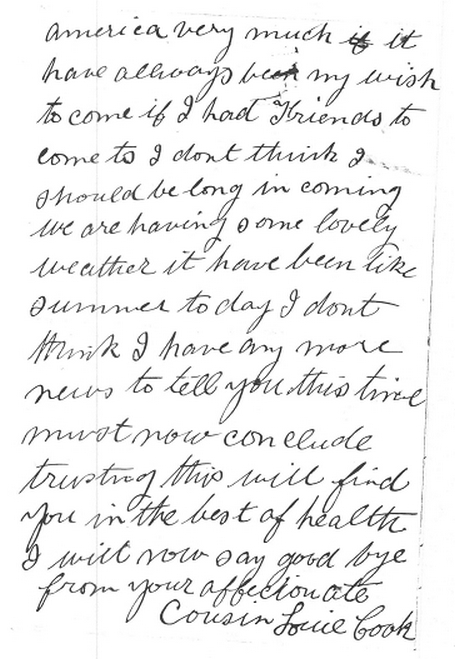 america very much if it
have allways been my wish
to come if I had Friends to
come to I dont think I
should be long in coming
we are having some lovely
weather it have been like
summer to day I dont
think I have any more
news to tell you this time
must now conclude
trusting this will find
you in the best of health
I will now say good bye
from your affectionate
Cousin Louie Cook